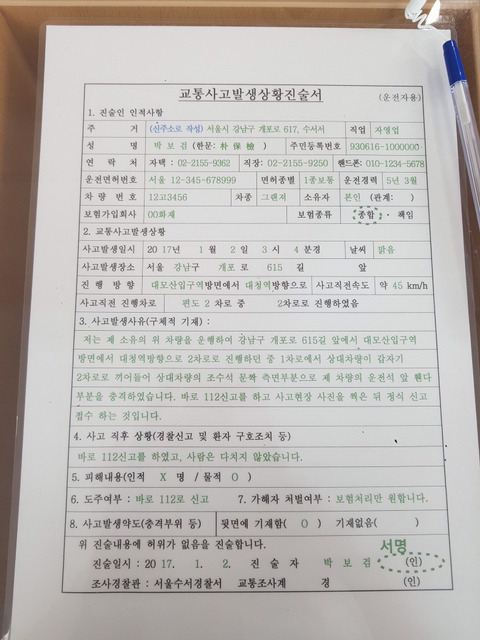 교통사고발생상황진술서 (운전자용)
1. 진술인 인적사항
주 거 (신주소로 작성) 서울시 강남구 개포로 617, 수서서 직업 자영업
성 명 박 보 검 (한문: 朴 保 檢 ) 주민등록번호 930616-1000000
연 락 처 자택 : 02-2155-9362 직장: 02-2155-9250 핸드폰: 010-1234-5678
운전면허번호 서울 12-345-678999 면허종별 1종보통 운전경력 5년 3월
차 량 번 호 12고3456 차종 그랜저 소유자 본인 (관계: )
보험가입회사 00화재 보험종류 종합 · 책임
2. 교통사고발생상황
사고발생일시 20 17년 1 월 2 일 3 시 4 분경 날씨 맑음
사고발생장소 서울 강남구 개포 로 615 길 앞
진 행 방 향 대모산입구역방면에서 대청역방향으로 사고직전속도 약 45 km/h
사고직전 진행차로 편도 2 차로 중 2차로로 진행하였음
3. 사고발생사유(구체적 기재) :
저는 제 소유의 위 차량을 운행하여 강남구 개포로 615길 앞에서 대모산입구역
방면에서 대청역방향으로 2차로로 진행하던 중 1차로에서 상대차량이 갑자기
2차로로 끼어들어 상대차량의 조수석 문짝 측면부분으로 제 차량의 운전석 앞 휀다
부분을 충격하였습니다. 바로 112신고를 하고 사고현장 사진을 찍은 뒤 정식 신고
접수 하는 것입니다.
4. 사고 직후 상황(경찰신고 및 환자 구호조치 등)
바로 112신고를 하였고, 사람은 다치지 않았습니다.
5. 피해내용(인적 X 명 / 물적 O )
6. 도주여부 : 바로 112로 신고 7. 가해자 처벌여부 : 보험처리만 원합니다.
8. 사고발생약도(충격부위 등) 뒷면에 기재함( O ) 기재없음( )
위 진술내용에 허위가 없음을 진술합니다. 서명
진술일시 : 20 17. 1. 2. 진 술 자 박 보 검 (인)
조사경찰관 : 서울수서경찰서 교통조사계 경 (인)